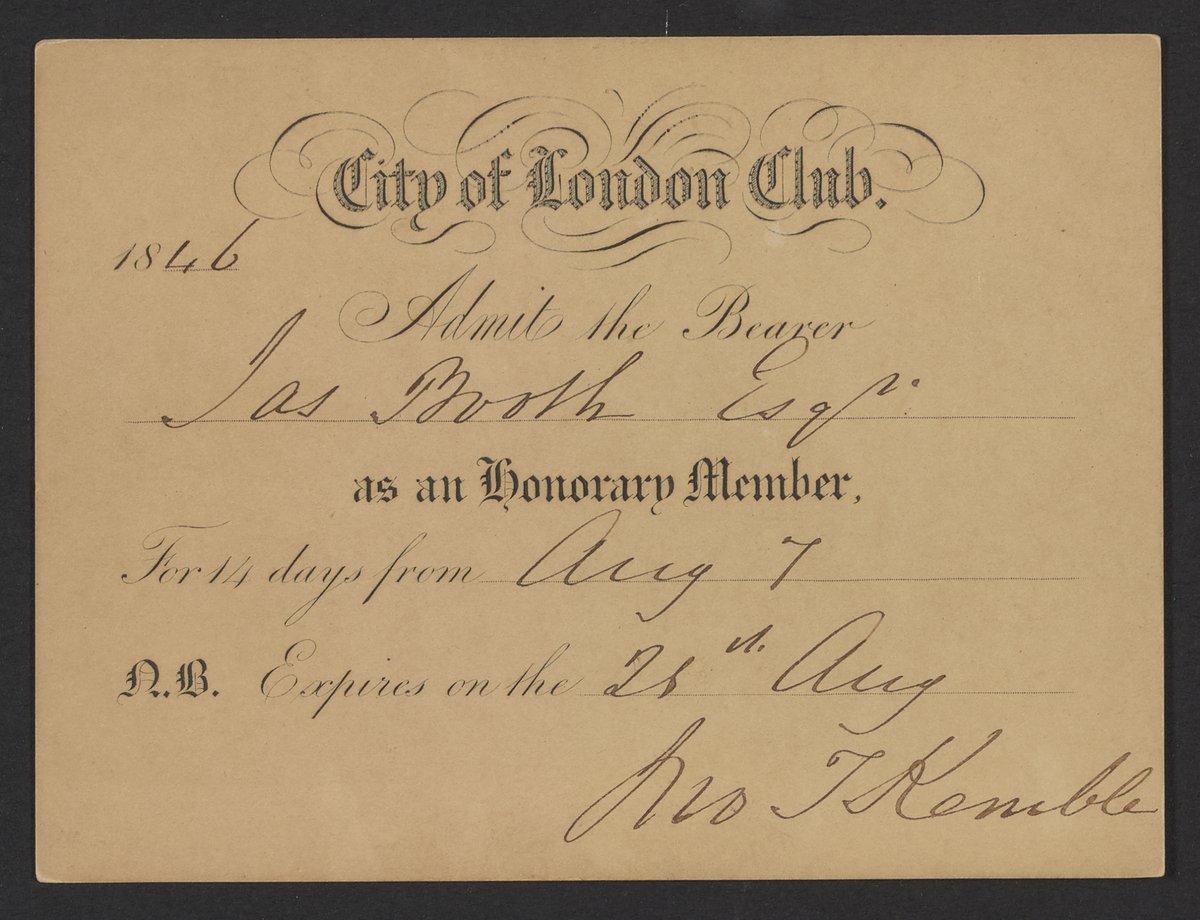 City of London Club.
1846
Admit the Bearer
Jas Booth Esqr.
as an Honorary Member,
For 14 days from Aug 7
N.B. Expires on the Aug
Jno T Kemble